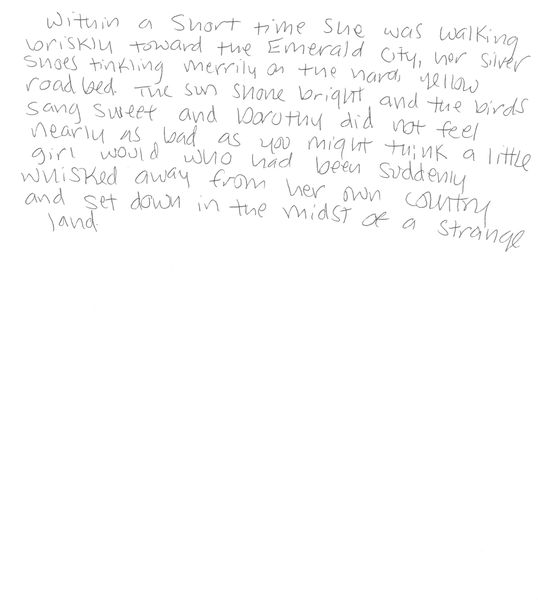 Within a Short time She was walking
briskly toward the Emerald City, her silver
Shoes tinkling merrily on the hard, yellow
road bed. The sun shone bright and the birds
sang sweet and Dorothy did not feel
nearly as bad as you might think a little
girl would who had been suddenly
whisked away from her own country
and set down in the midst of a strange
land.